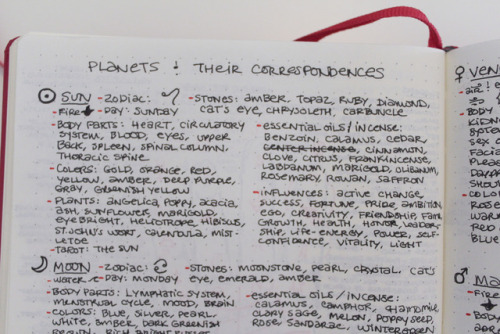 PLANETS & THEIR CORRESPONDENCES
☉ SUN - ZODIAC: ♌ - STONES: AMBER, TOPAZ, RUBY, DIAMOND,
- FIRE - DAY: SUNDAY CAT'S EYE, CHRYSOLETH, CARBUNCLE
- BODY PARTS: HEART, CIRCULATORY
SYSTEM, BLOOD, EYES, UPPER
BACK, SPLEEN, SPINAL COLUMN,
THORACIC SPINE
- COLORS: GOLD, ORANGE, RED,
YELLOW, AMBER, DEEP PURPLE,
GRAY, GREENISH YELLOW
- PLANTS: ANGELICA, POPPY, ACACIA,
ASH, SUNFLOWER, MARIGOLD,
EYEBRIGHT, HELIOTROPE, HIBISCUS,
ST. JOHN'S WORT, CALENDULA, MIST-
LETOE
- TAROT: THE SUN
- ESSENTIAL OILS / INCENSE:
BENZOIN, CALAMUS, CEDAR,
CENTER INTENSE, CINNAMON,
CLOVE, CITRUS, FRANKINCENSE,
LABDANUM, MARIGOLD, OLIBANUM,
ROSEMARY, ROWAN, SAFFRON
- INFLUENCES: ACTIVE CHANGE,
SUCCESS, FORTUNE, PRIDE, AMBITION,
EGO, CREATIVITY, FRIENDSHIP, FAME,
GROWTH, HEALTH, HONOR, LEADER-
SHIP, LIFE-ENERGY, POWER, SELF-
CONFIDENCE, VITALITY, LIGHT
☽ MOON - ZODIAC: ♋ - STONES: MOONSTONE, PEARL, CRYSTAL, CAT'S
- WATER - DAY: MONDAY EYE, EMERALD, AMBER
- BODY PARTS: LYMPHATIC SYSTEM,
MENSTRUAL CYCLE, MOOD, BRAIN
- COLORS: BLUE, SILVER, PEARL,
WHITE, AMBER, DARK GREENISH
- ESSENTIAL OILS / INCENSE:
CALAMUS, CAMPHOR, CHAMOMILE,
CLARY SAGE, MELON, POPPY SEED,
ROSE, SANDARAC, WINTERGREEN
♀ VEN
- BODY
♂ MA